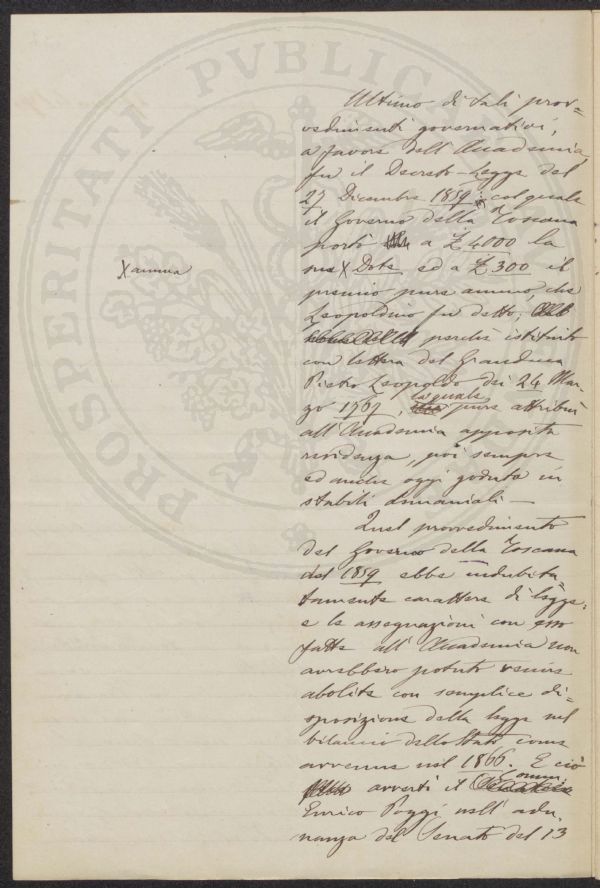 PROSPERITATI PVBLICAE
Ultimo di tali prov=
vedimenti governativi,
a favore dell'Accademia,
fu il Decreto-Legge del
27 Dicembre 1859; col quale
il Governo della Toscana
portò a £ 4000 la
sua X Dote ed a £ 300 il
X annua
premio pure annuo, che
Leopoldino fu detto,
perchè istituito
con lettera del Granduca
Pietro Leopoldo dei 24 Mar-
zo 1767, la quale pure attribuì
all'Accademia apposita
residenza, poi sempre
ed anche oggi goduta in
stabili demaniali —
Quel provvedimento
del Governo della Toscana
del 1859 ebbe indubita=
tamente carattere di legge:
e le assegnazioni con esso
fatte all'Accademia non
avrebbero potuto venire
abolite con semplice di=
sposizione della legge nel
bilancio dello Stato come
avvenne nel 1866. E ciò
avvertì il Comm.
Enrico Poggi nell'adu-
nanza del Senato del 13